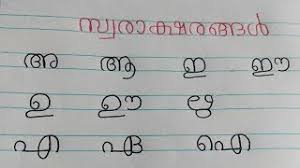 സ്വരാക്ഷരങ്ങൾ
അ ആ ഇ ഈ
ഉ ഊ ഋ
എ ഏ ഐ